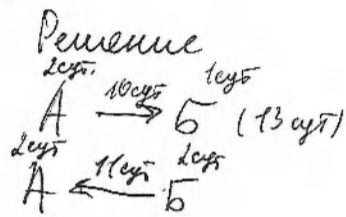 Решение
2сут. 10сут 1сут
А → Б (13сут)
2сут 11сут 2сут
А ← Б